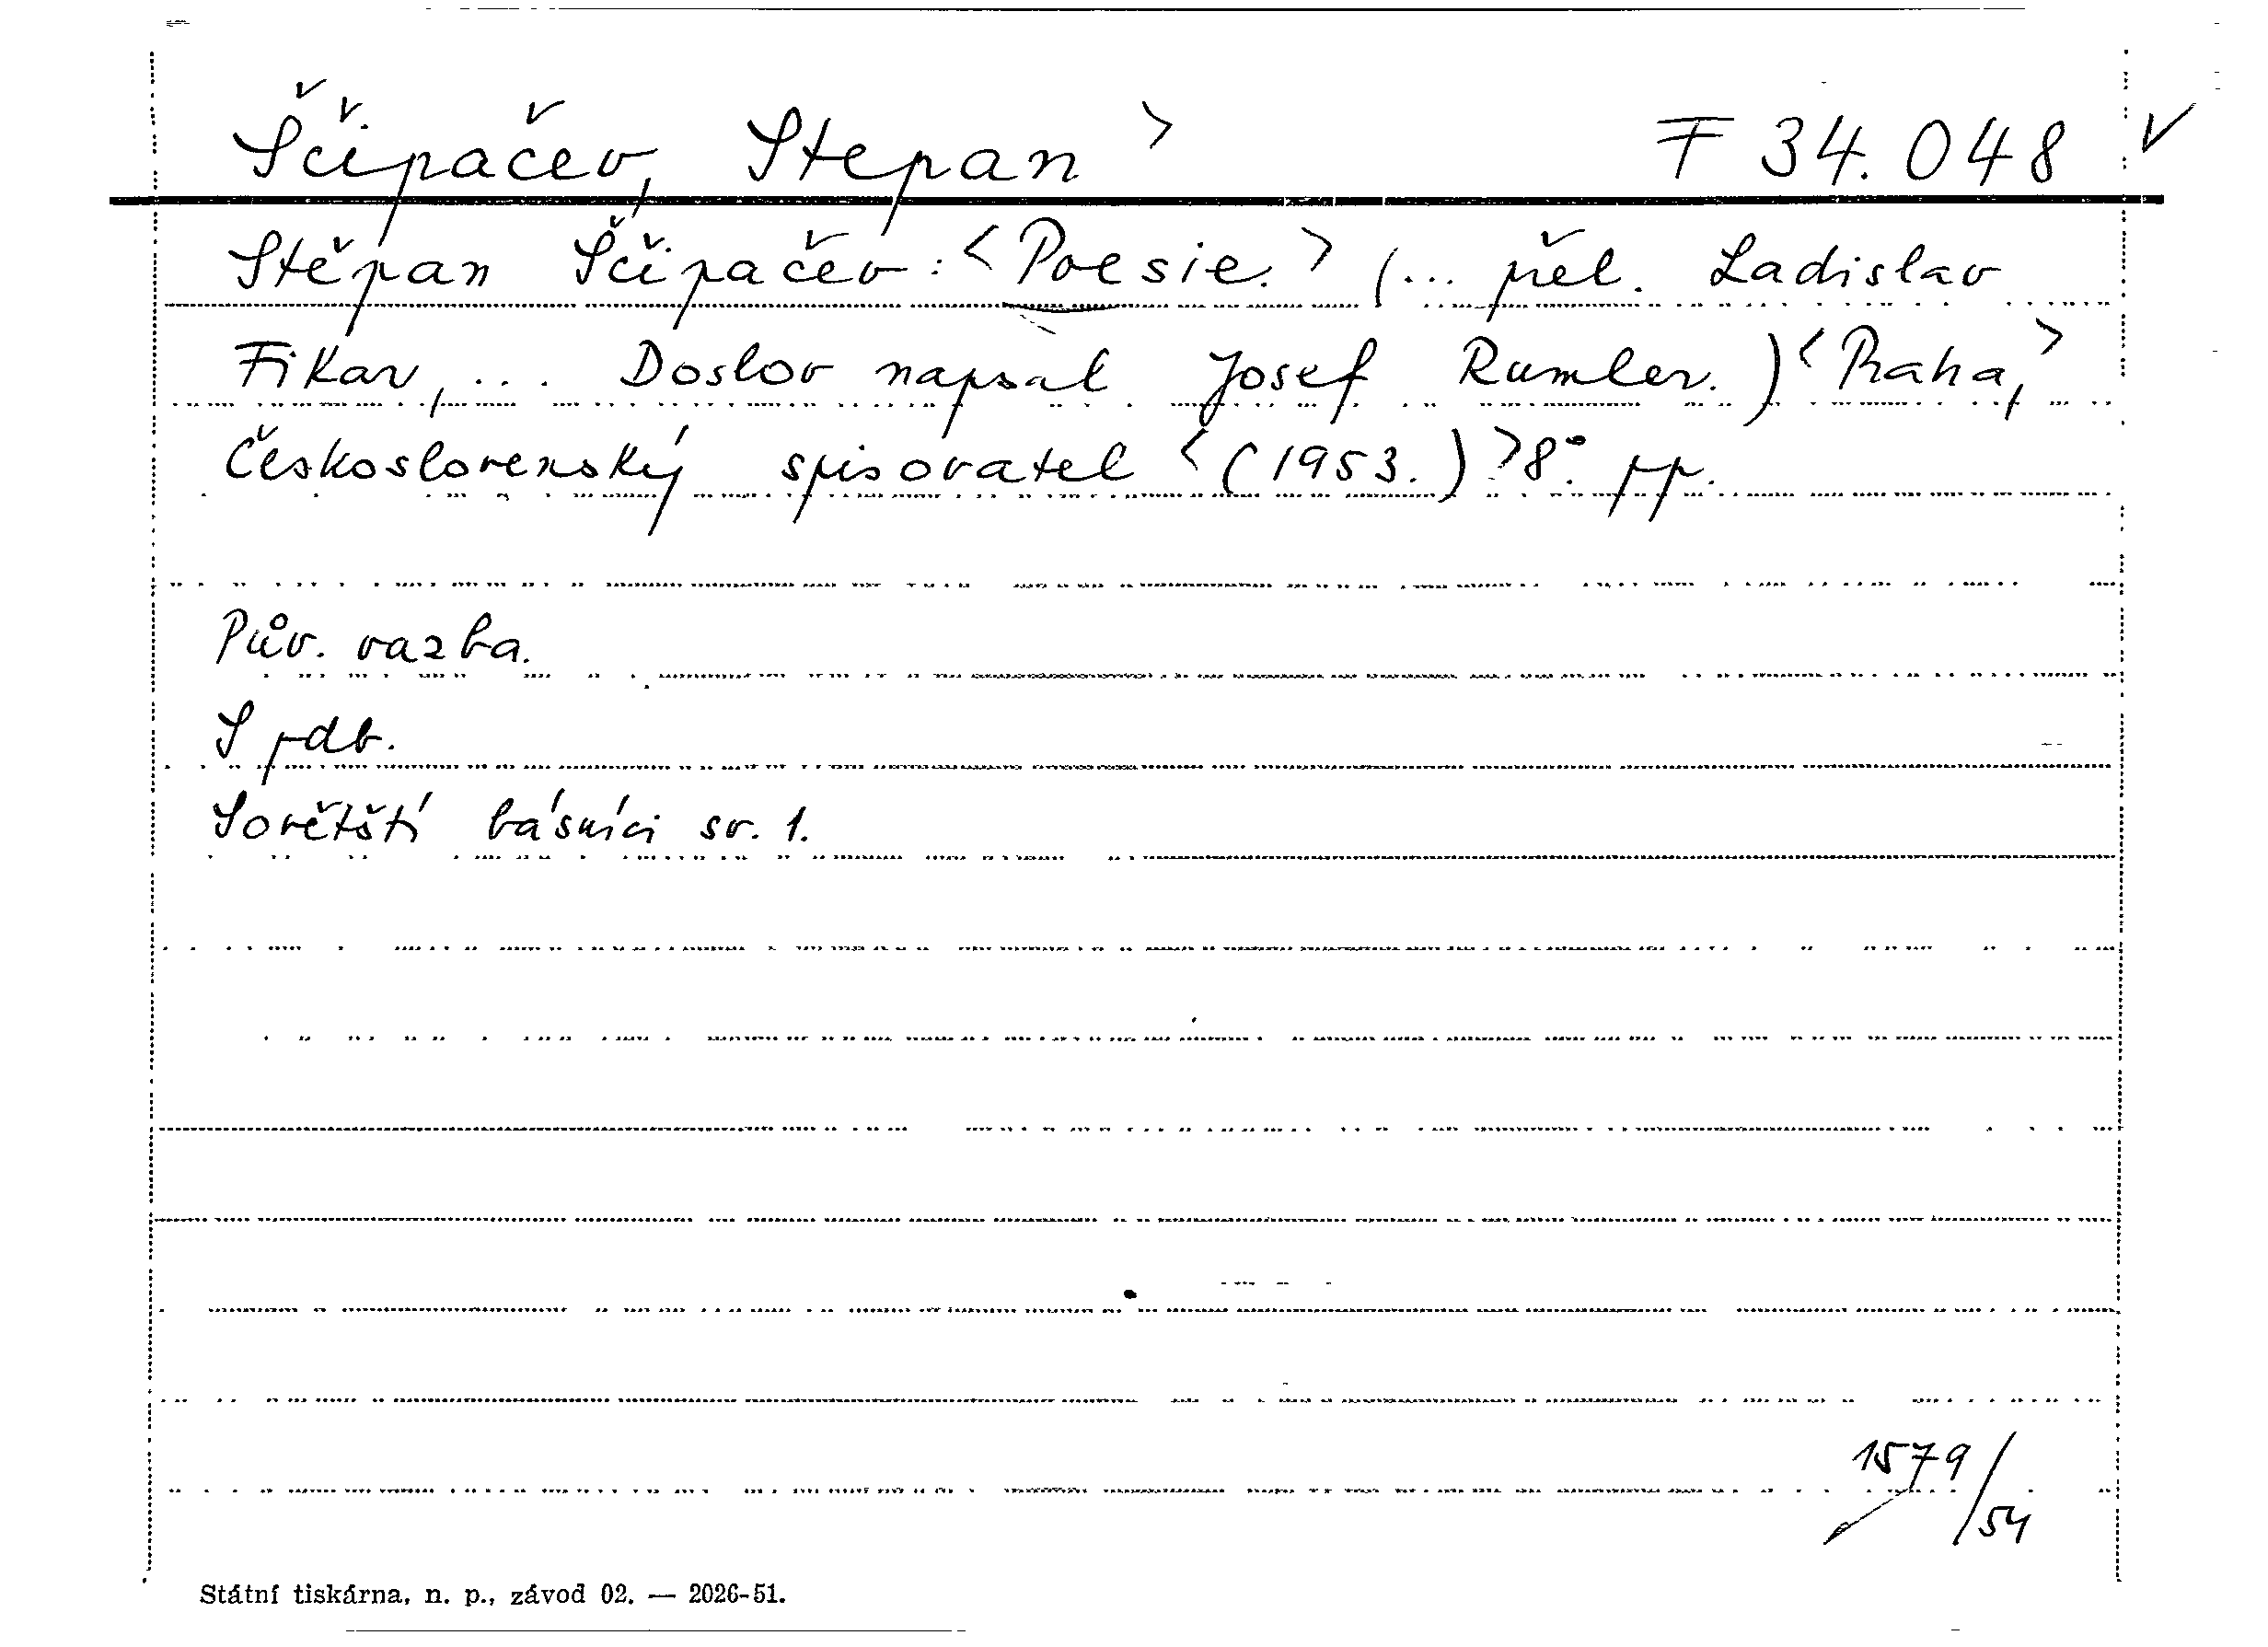 Ščipačev, Stepan > F 34.048 V
Stěpan Ščipačev: <Poesie.> (... přel. Ladislav
Fikar, ... Doslov napsal Josef Rumler.) <Praha,>
Československý spisovatel <(1953.)> 8°. pp.
Pův. vazba.
S pdb.
Sovětští básníci sv. 1.
1579/
54
Státní tiskárna, n. p., závod 02. — 2026-51.